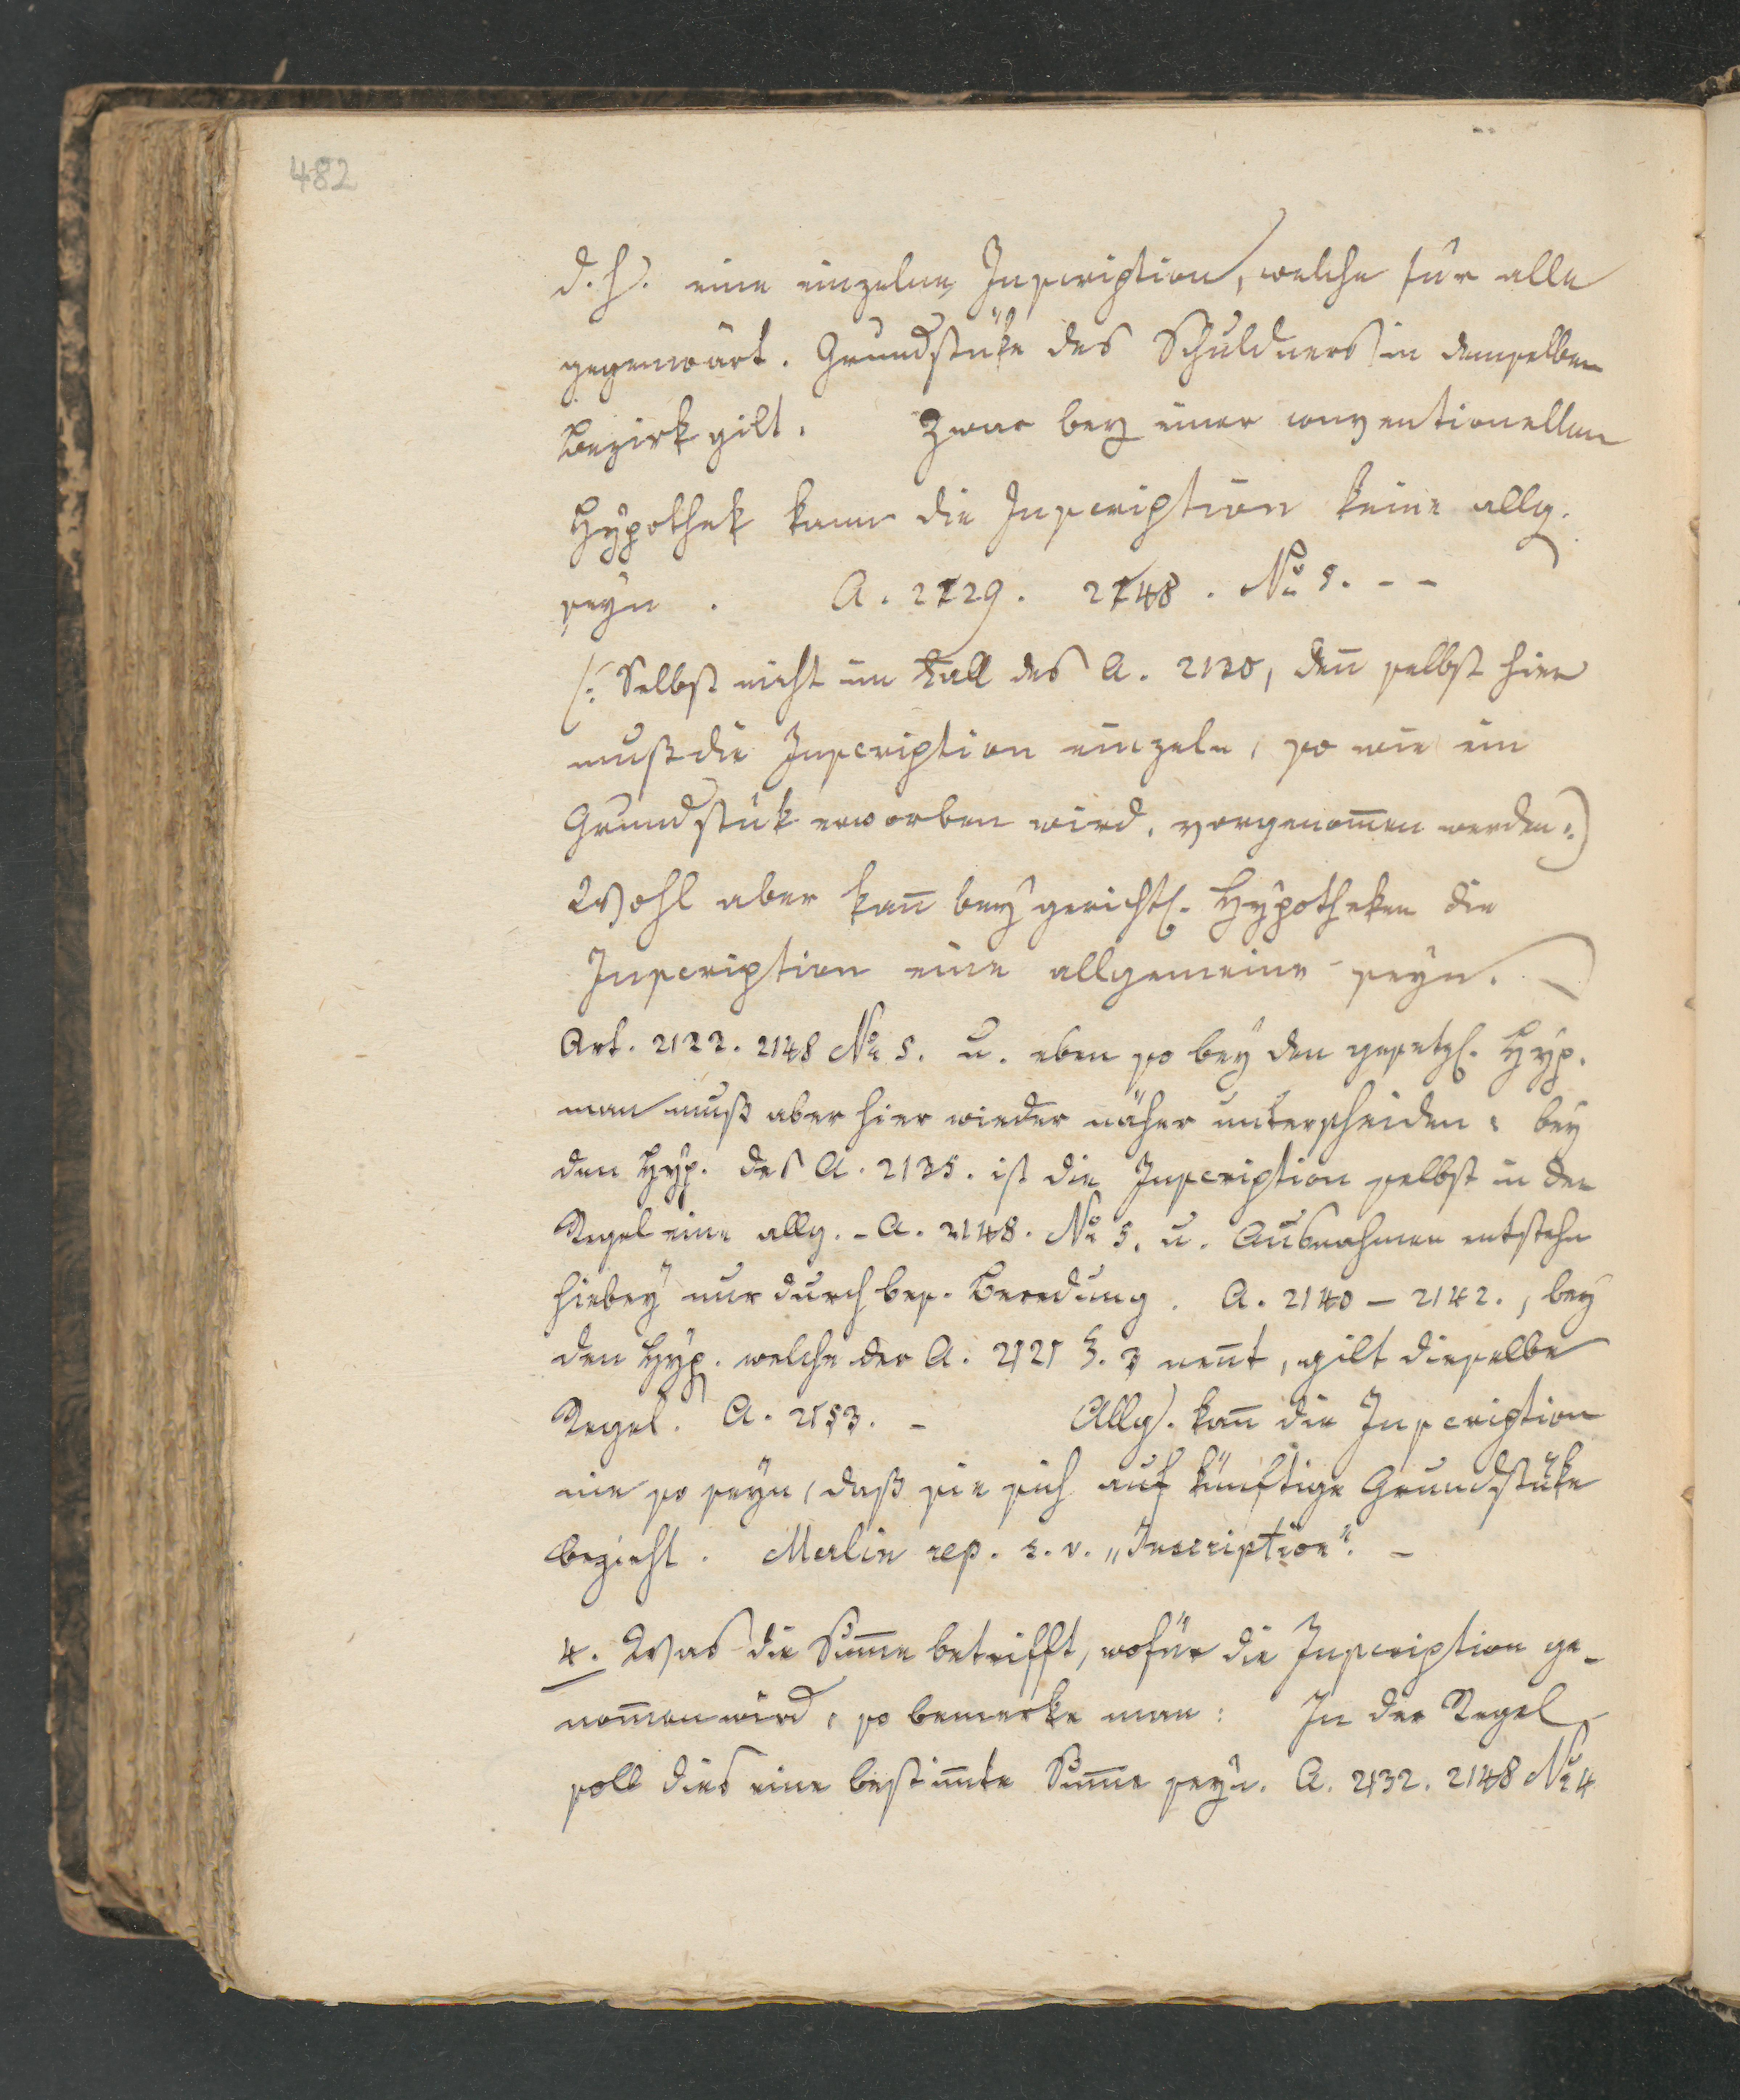 482
d. h. eine einzelne Inscription, welche für alle
gegenwärt. Grundstüke des Schuldners in demselben
Bezirk gilt. Zwar bey einer conventionellen
Hypothek kann die Inscription keine allg.
seyn. A. 2129. 2148. No 5. - -
(: Selbst nicht im Fall des A. 2130, den̄ selbst hier
muß die Inscription einzeln, so wie ein
Grundstük erworben wird, vorgenom̄en werden :)
Wohl aber kan̄ bey gerichtl. Hypotheken die
Inscription eine allgemeine seyn. –
Art. 2122. 2148 No 5. u. eben so bey den gesetzl. Hyp.
man muß aber hier wieder näher unterscheiden: bey
den Hyp. des A. 2135. ist die Inscription selbst in der
Regel eine allg. - A. 2148. No 5. u. Ausnahmen entstehn
hiebey nur durch bes. Beredung. A. 2140 – 2142., bey
den Hyp. welche der A. 2121 §. 3 nen̄t, gilt dieselbe
Regel. A. 2153. – Allg. kan̄ die Inscription
nie so seyn, daß sie sich auf künftige Grundstüke
bezieht. Merlin rep. s. v. „Inscription“. –
4. Was die Sum̄e betrifft, wofür die Inscription ge-
nom̄en wird, so bemerke man: In der Regel
soll dies eine bestim̄te Sum̄e seyn. A. 2132. 2148 No 4